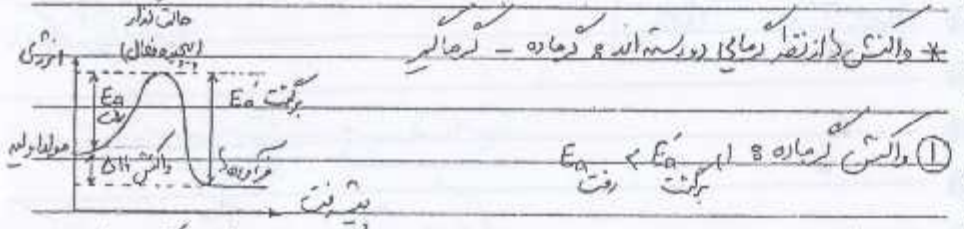 * واکنش ها از نظر گرمایی دو دسته اند : گرماده - گرماگیر
① واکنش گرماده : ۱) Ea رفت < E'a برگشت
حالت گذار
(پیچیده فعال)
انرژی
Ea رفت
E'a برگشت
مواد اولیه
ΔH واکنش
فرآورده ها
پیشرفت